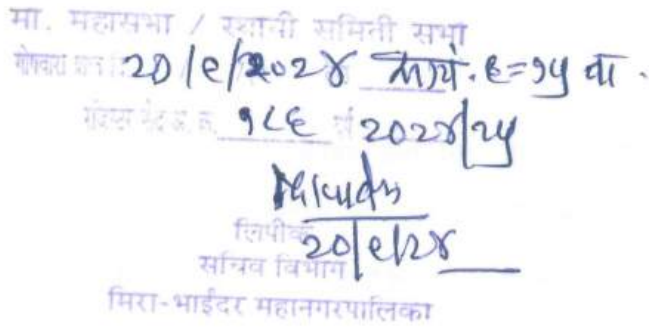 मा. महासभा / स्थायी समिती सभा
गोषवारा प्राप्त दि. २०/९/२०२४ सायं. ६=१५ वा.
गोषवारा नोंद क्र. १८६ २०२४/२५
लिपीक २०/९/२४
सचिव विभाग
मिरा-भाईंदर महानगरपालिका